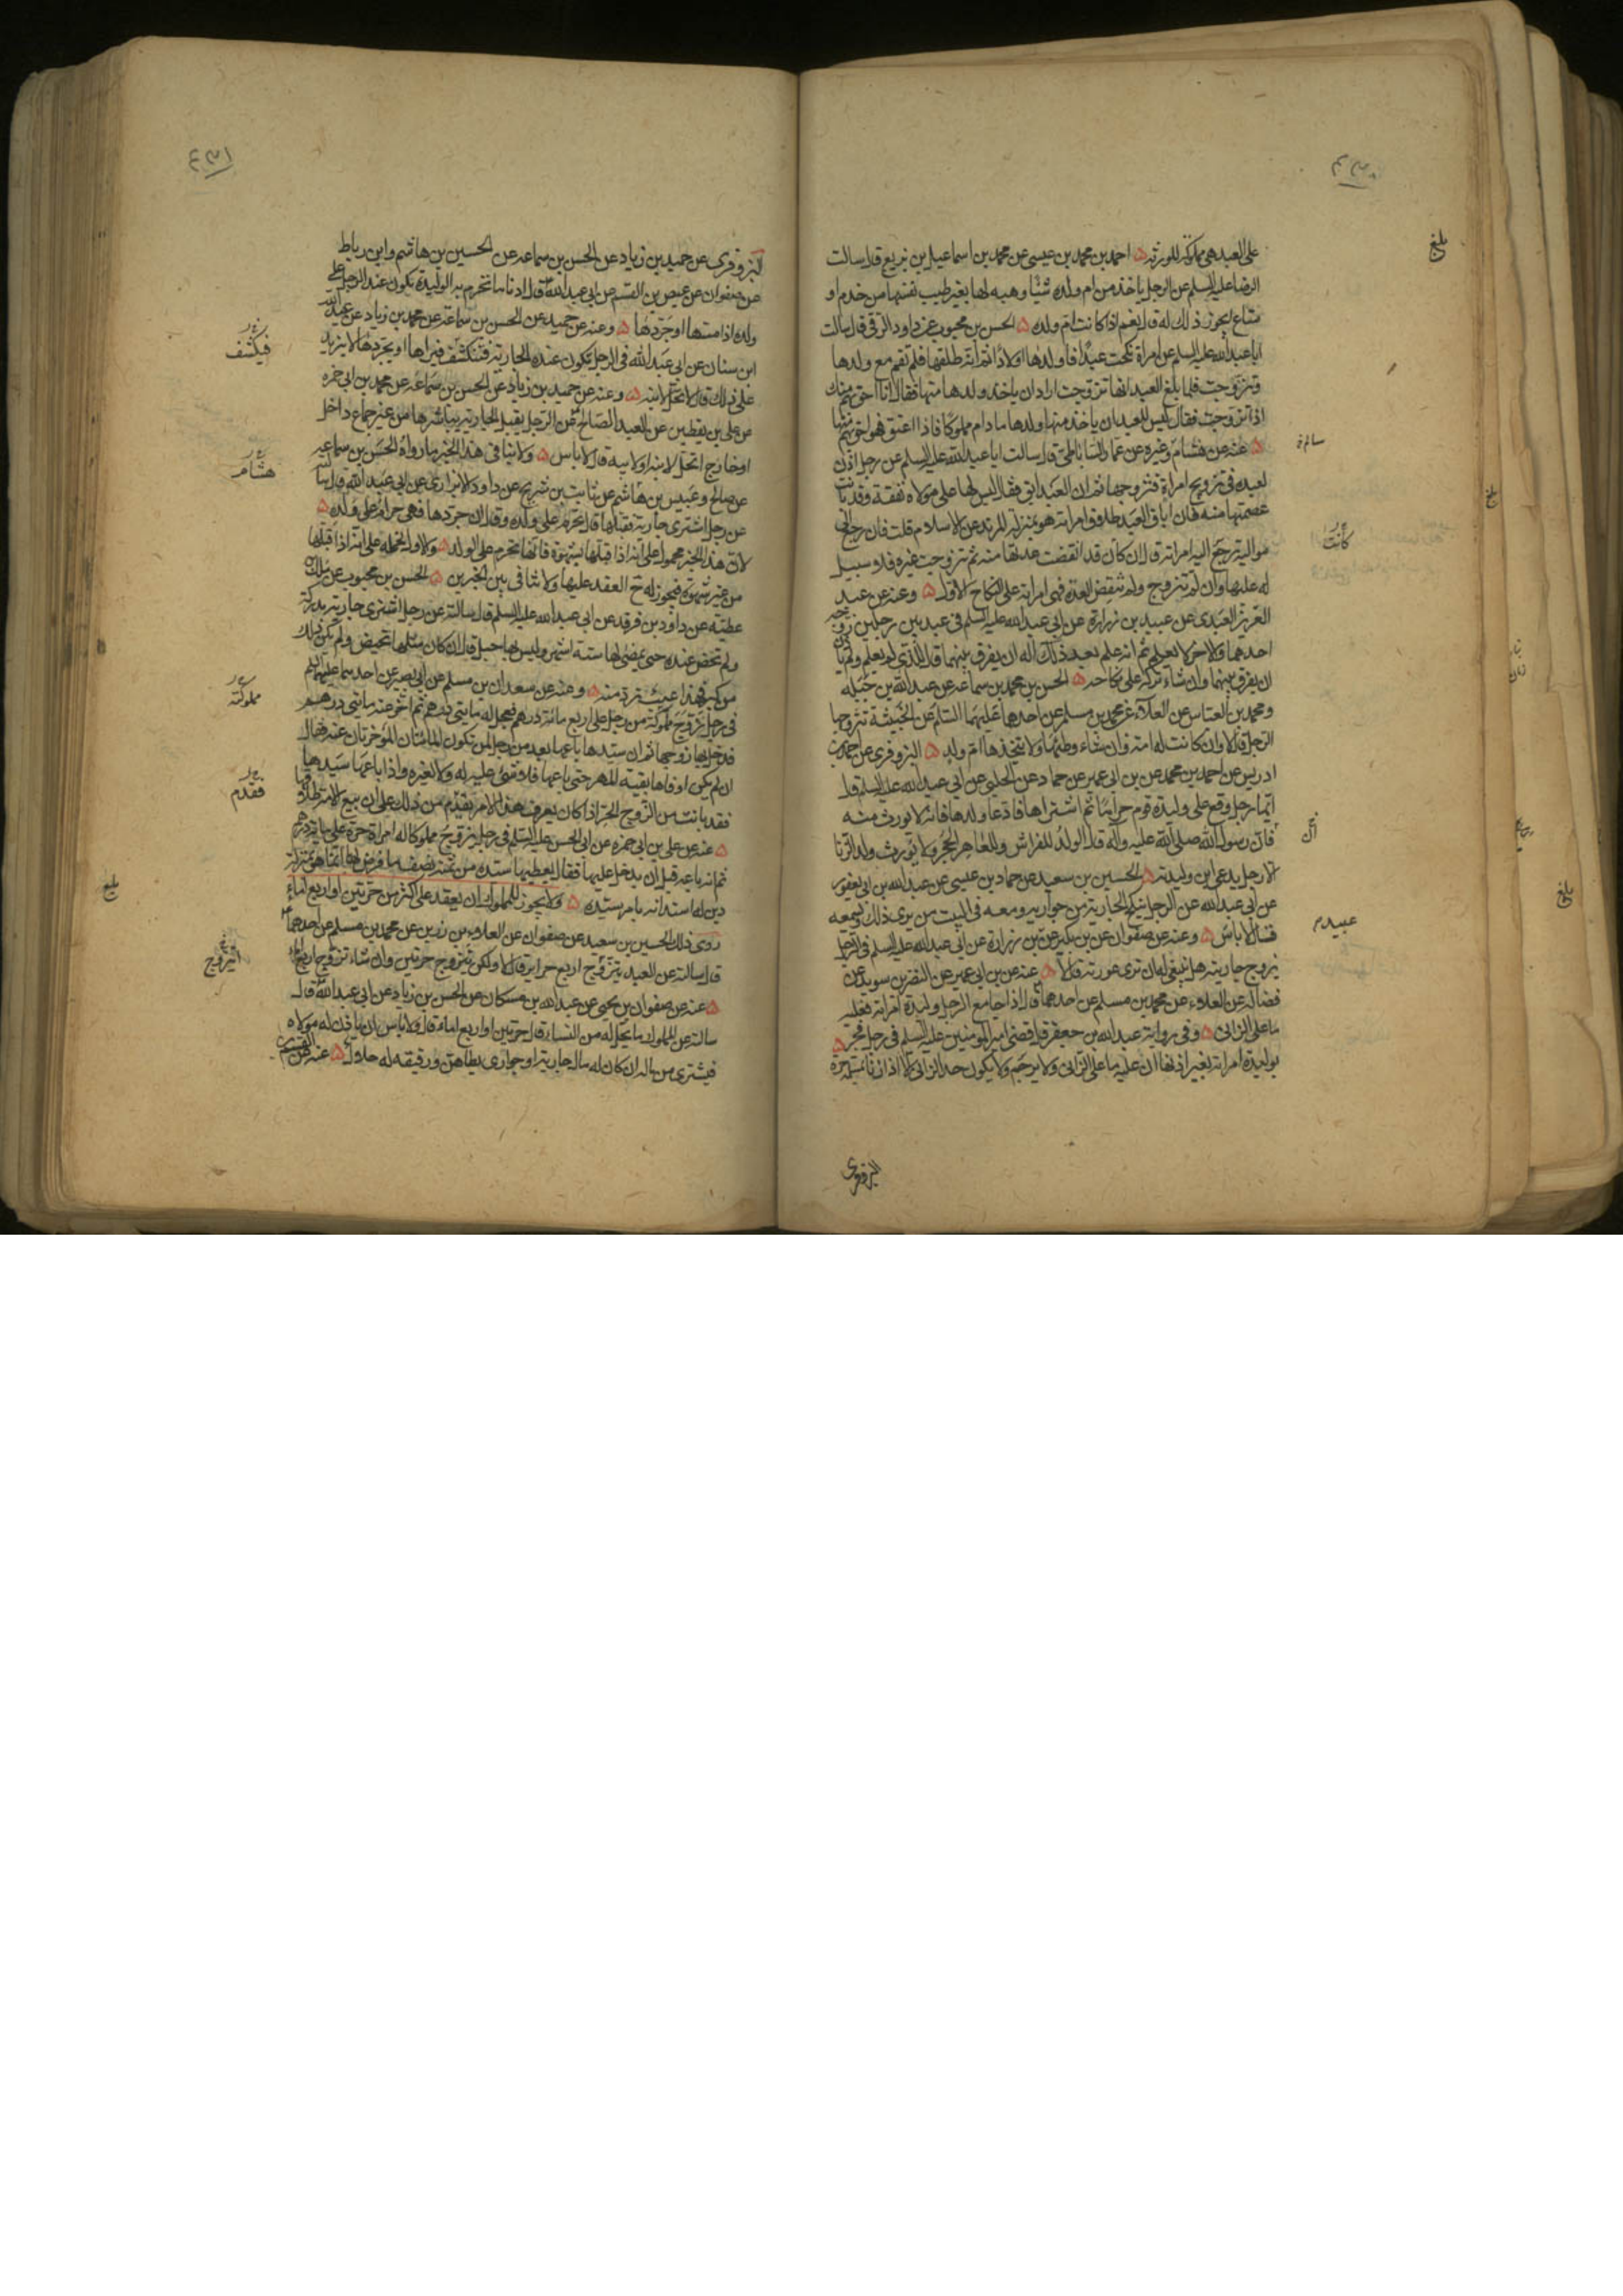 ٤٣٠
على العبد هي مملوكة للورثة ۵ احمد بن محمد بن عيسى عن محمد بن اسماعيل بن بزيع قال سالت
الرضا عليه السلم عن الرجل ياخذ من ام ولده شيئا وهبه لها بغير طيب نفسها من خدم او
متاع ايجوز ذلك له قال نعم اذا كانت ام ولده ۵ الحسن بن محبوب عن داود الرقى قال سالت
ابا عبد الله عليه السلم عن امراة نكحت عبدا فاولدها اولادا ثم انه طلقها فلم تقم مع ولدها
وتزوجت فلما بلغ العبد انها تزوجت اراد ان ياخذ ولدها منها فقال انا احق بهم منك
اذا تزوجت فقال ليس للعبد ان ياخذ منها ولدها ما دام مملوكا فاذا اعتق فهو احق بهم منها
۵ عنه عن هشام وغيره عن عمار الساباطى قال سالت ابا عبد الله عليه السلم عن رجل اذن
لعبده فى تزويج امراة فتزوجها ثم ان العبد ابق فقال ليس لها على مولاه نفقة وقد بانت
عصمتها منه فان اباق العبد طلاق امراته هو بمنزلة المرتد عن الاسلام قلت فان رجع الى
مواليه ترجع اليه امراته قال ان كان قد انقضت عدتها منه ثم تزوجت غيره فلا سبيل
له عليها وان لم تتزوج ولم تنقض العدة فهى امراته على النكاح الاول ۵ وعنه عن عبد
العزيز العبدى عن عبيد بن زرارة عن ابى عبد الله عليه السلم فى عبد بين رجلين زوجه
احدهما والاخر لا يعلم ثم انه علم بعد ذلك اله ان يفرق بينهما قال للذى لم يعلم ولم ياذن
ان يفرق بينهما وان شاء تركه على نكاحه ۵ الحسن بن محمد بن سماعه عن عبد الله بن جبله
ومحمد بن العباس عن العلاء عن محمد بن مسلم عن احدهما عليهما السلام عن الخبيثة تتزوجها
الرجل قال لا وان كانت له امة فان شاء وطئها ولا يتخذها ام ولد ۵ البزوفرى عن احمد بن
ادريس عن احمد بن محمد عن بن ابى عمير عن حماد عن الحلبى عن ابى عبد الله عليه السلم قال
ايما رجل وقع على وليدة قوم حراما ثم اشتراها فادعا ولدها فانه لا يورث منه
فان رسول الله صلى الله عليه واله قال الولد للفراش وللعاهر الحجر ولا يورث ولد الزنا
الا رجل يدعى ابن وليدته ۵ الحسين بن سعيد عن حماد بن عيسى عن عبد الله بن ابى يعفور
عن ابى عبد الله عن الرجل ينكح الجارية من جواريه ومعه فى البيت من يرى ذلك ويسمعه
قال لا باس ۵ وعنه عن صفوان عن بن بكير عن بن زرارة عن ابى عبد الله عليه السلم فى الرجل
يزوج جاريته هل ينبغى له ان ترى عورته قال لا ۵ عنه عن بن ابى عمير عن النضر بن سويد عن
فضالة عن العلاء عن محمد بن مسلم عن احدهما قال اذا جامع الرجل وليدة امراته فعليه
ما على الزانى ۵ وفى رواية عبد الله بن جعفر قال قضى امير المومنين عليه السلم فى رجل فجر ۵
بوليدة امراته بغير اذنها ان عليه ما على الزانى ولا يرجم ولا يكون حد الزانى الا اذا زنا بمسلمة حرة
البزوفرى
بلغ
كانت
بلغ
٤٣١
البزوفرى عن حميد بن زياد عن الحسن بن سماعه عن الحسين بن هاشم وابن رباط
عن صفوان عن عيص بن القسم عن ابى عبد الله قال ادنا ما تحرم به الوليدة تكون عند الرجل على
ولده اذا مسها او جردها ۵ وعنه عن حميد عن الحسن بن سماعه عن محمد بن زياد عن عبد الله
ابن سنان عن ابى عبد الله فى الرجل تكون عنده الجارية فتنكشف فيراها او يجردها لا يزيد
على ذلك قال لا تحل لابنه ۵ وعنه عن حميد بن زياد عن الحسن بن سماعه عن محمد بن ابى حمزه
عن على بن يقطين عن العبد الصالح عن الرجل يقبل الجارية يباشرها من غير جماع داخل
او خارج اتحل لابنه او لابيه قال لا باس ۵ ولا ينافى هذا الخبر ما رواه الحسن بن سماعه
عن صالح وعبيس بن هاشم عن ثابت بن شريح عن داود الابزارى عن ابى عبد الله قال سالته
عن رجل اشترى جارية فقبلها قال تحرم على ولده وقال ان جردها فهى حرام على ولده ۵
لان هذا الخبر محمول على انه اذا قبلها بشهوة فانها تحرم على الولد ۵ والاول نحمله على انه اذا قبلها
من غير شهوة فيجوز له ح العقد عليها ولا تنافى بين الخبرين ۵ الحسن بن محبوب عن مالك بن
عطيه عن داود بن فرقد عن ابى عبد الله عليه السلم قال سالته عن رجل اشترى جارية مدركة
ولم تحض عنده حتى يمضى لها ستة اشهر وليس لها حبل قال ان كان مثلها تحيض ولم يكن ذلك
من كبر فهذا عيب ترد منه ۵ وعنه عن سعدان بن مسلم عن ابى بصير عن احدهما عليهما السلم
فى رجل تزوج مملوكة من رجل على اربع مائة درهم فعجل له مايتى درهم ثم اخر عنه مايتى درهم
فدخل بها زوجها ثم ان سيدها باعها بعد من رجل لمن تكون المائتان المؤخرتان عنه فقال
ان لم يكن اوفاها بقية المهر حتى باعها فلا شئ عليه له ولا لغيره واذا باعها سيدها
فقد بانت من الزوج الحر اذا كان يعرف هذا الامر تقدم من ذلك على ان بيع الامة طلاقها
۵ عنه عن على بن ابى حمزه عن ابى الحسن عليه السلم فى رجل يزوج مملوكا له امراة حرة على مائة درهم
ثم انه باعه قبل ان يدخل عليها فقال يعطيها سيده من ثمنه نصف ما فرض لها انما هو بمنزلة
دين له استدانه بامر سيده ۵ ولا يجوز للمملوك ان يعقد على اكثر من حرتين او اربع اماء
روى ذلك الحسين بن سعيد عن صفوان عن العلاء بن رزين عن محمد بن مسلم عن احدهما
قال سالته عن العبد يتزوج اربع حراير قال لا ولكن يتزوج حرتين وان شاء تزوج اربع اماء
۵ عنه عن صفوان بن يحيى عن عبد الله بن مسكان عن الحسن بن زياد عن ابى عبد الله قال
سالته عن المملوك ما يحل له من النساء قال حرتين او اربع اماء قال ولا باس ان ياذن له مولاه
فيشترى من ماله ان كان له مال جارية او جوارى يطاهن ورقيقه له حلال ۵ عنه عن
فيكشف
هشام
مملوكته
فقدم
اتزوج
بلغ